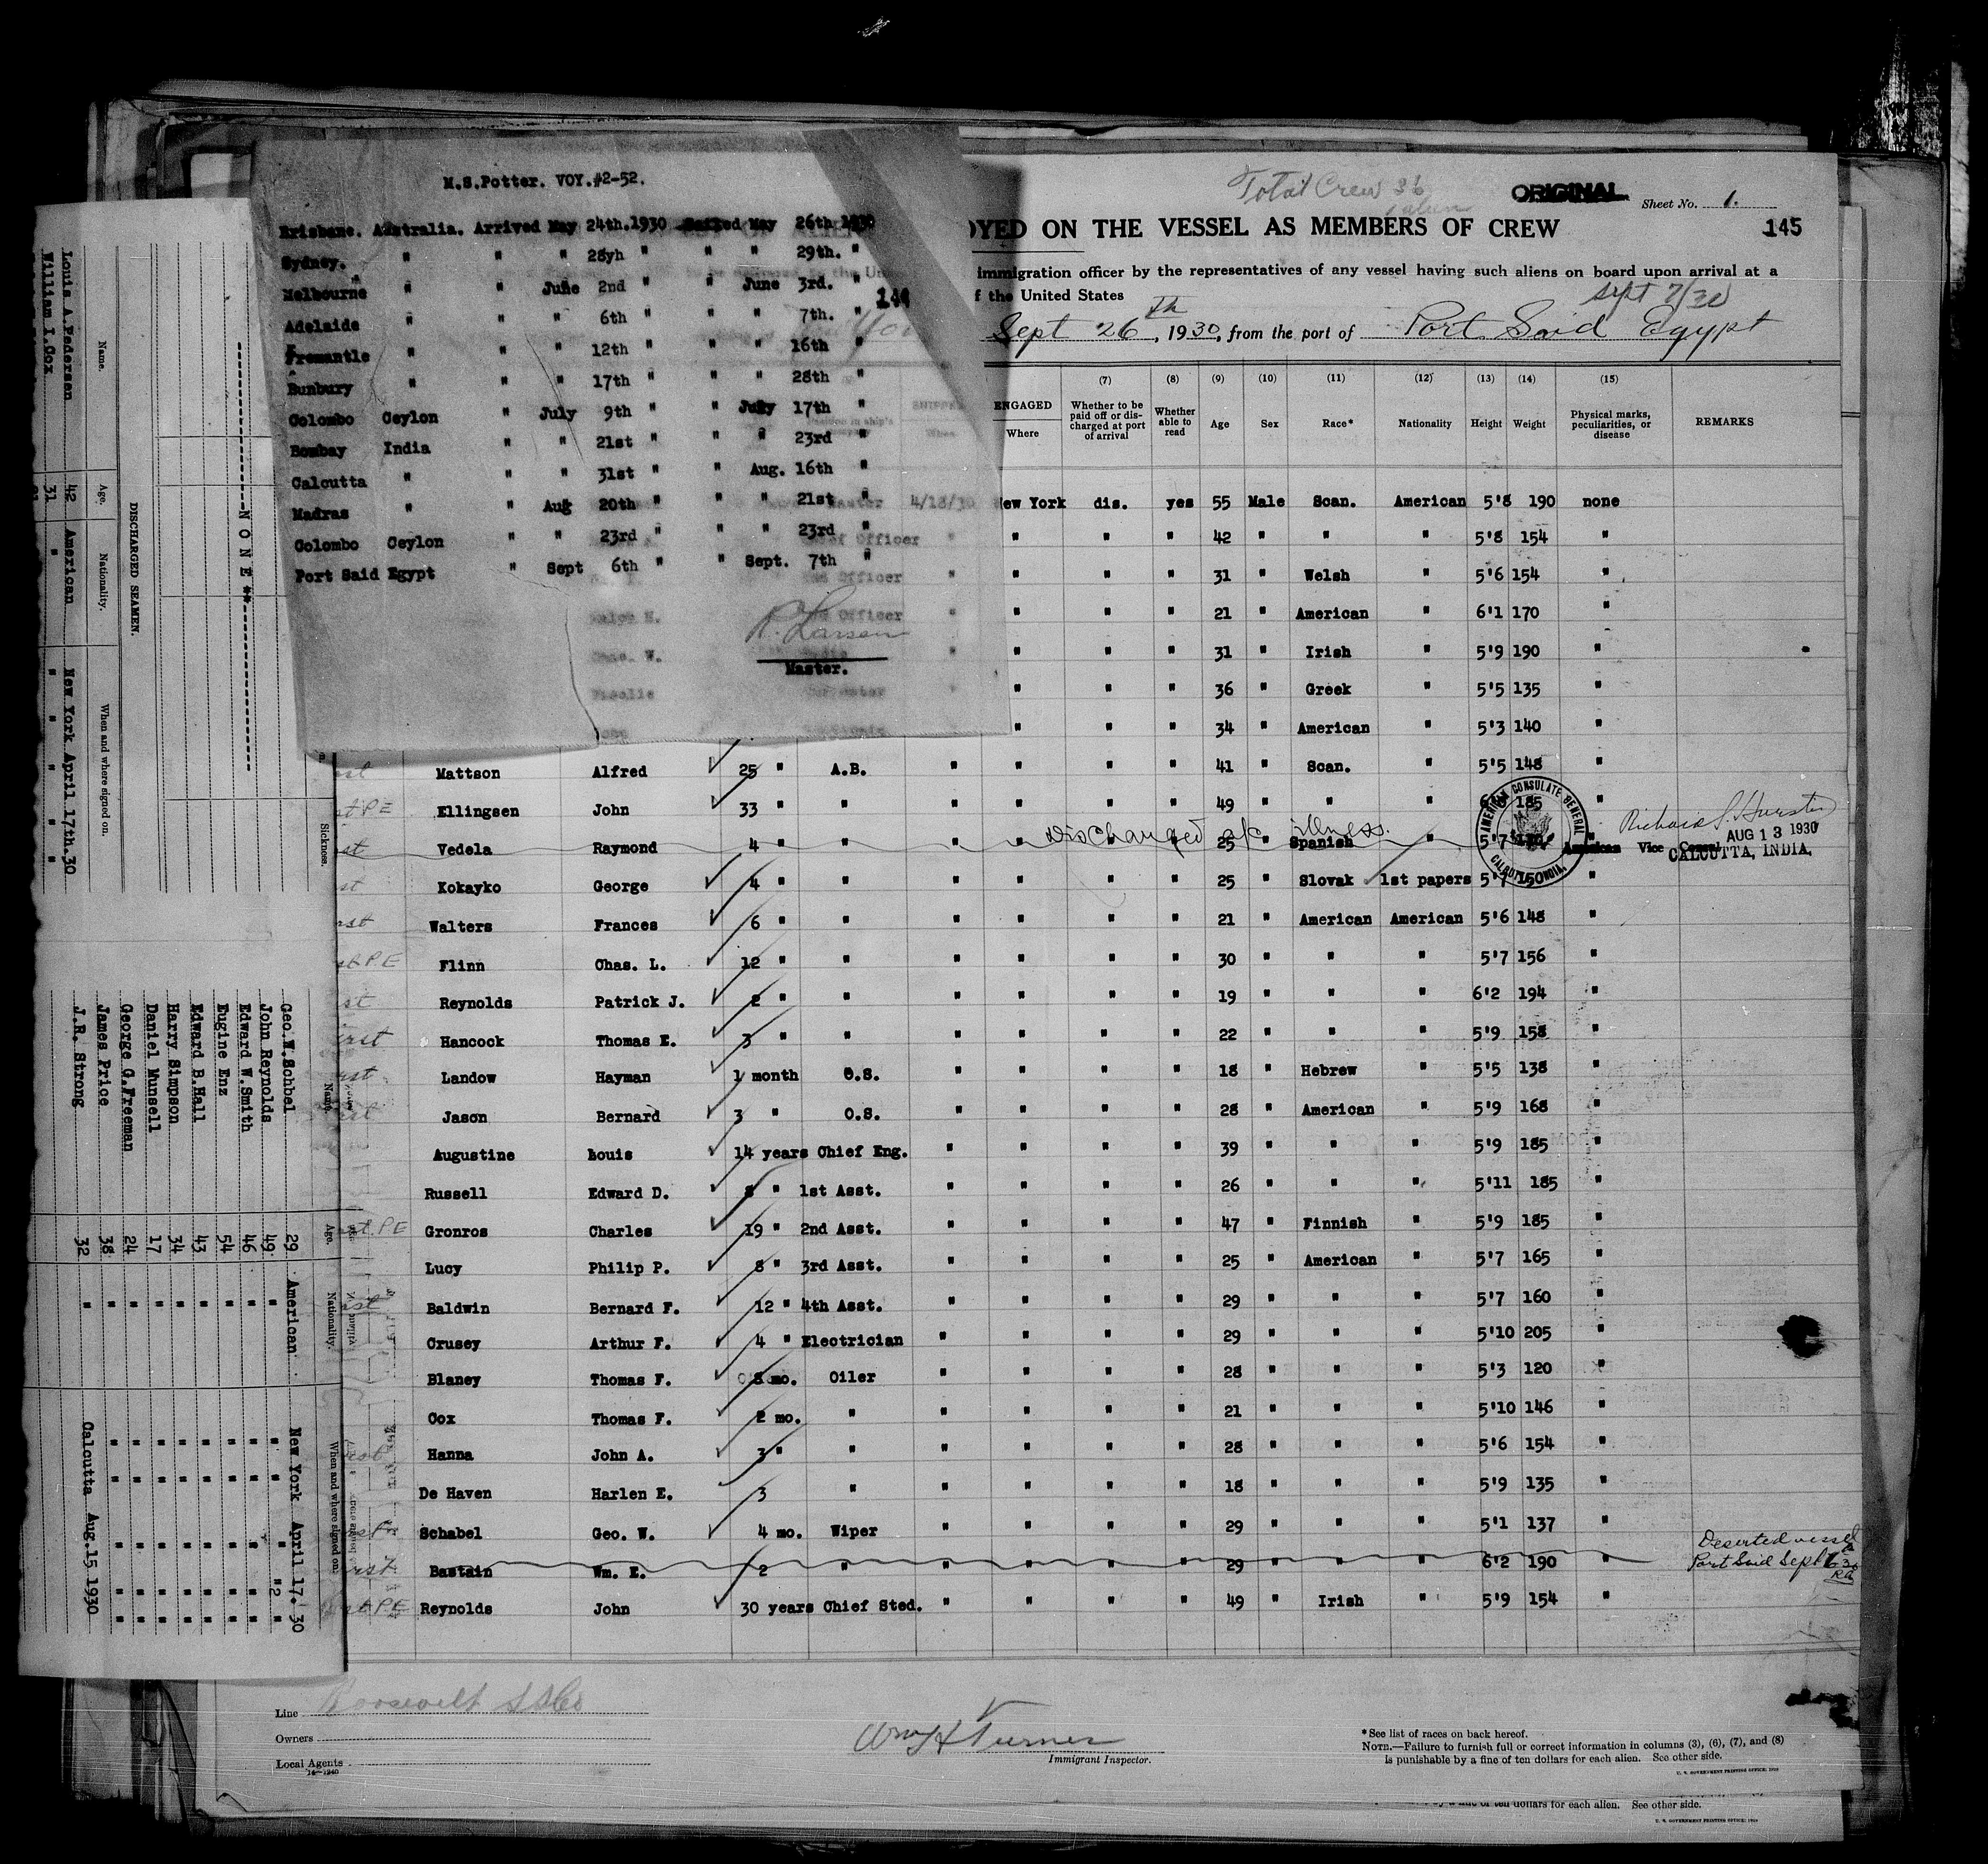 M.S.Potter. VOY.#2-52.
Brisbane. Australia. Arrived May 24th.1930 Sailed May 26th 1930
Sydney. " " " 28yh " " " 29th. "
Melbourne " " June 2nd " " June 3rd. "
Adelaide " " " 6th " " " 7th. "
Fremantle " " " 12th " " " 16th "
Bunbury " " " 17th " " " 28th "
Colombo Ceylon " July 9th " " July 17th "
Bombay India " " 21st " " " 23rd "
Calcutta " " " 31st " " Aug. 16th "
Madras " " Aug 20th " " " 21st "
Colombo Ceylon " " 23rd " " " 23rd "
Port Said Egypt " Sept 6th " " Sept. 7th "
R. Larsen
Master.
Total Crew 36
ORIGINAL
Sheet No. 1.
145
OYED ON THE VESSEL AS MEMBERS OF CREW
immigration officer by the representatives of any vessel having such aliens on board upon arrival at a
f the United States
Sept 7/30
Sept 26th, 1930, from the port of Port Said Egypt
(7) (8) (9) (10) (11) (12) (13) (14) (15)
ENGAGED Where
Whether to be paid off or discharged at port of arrival
Whether able to read
Age Sex Race* Nationality Height Weight
Physical marks, peculiarities, or disease
REMARKS
4/18/30 New York dis. yes 55 Male Scan. American 5'8 190 none
" " " " 42 " " " 5'8 154 "
" " " " 31 " Welsh " 5'6 154 "
" " " " 21 " American " 6'1 170 "
" " " 31 " Irish " 5'9 190 "
" " " " 36 " Greek " 5'5 135 "
" " " 34 " American " 5'3 140 "
Mattson Alfred 25 " A.B. " " " " 41 " Scan. " 5'5 148 "
Ellingsen John 33 " " " " " " 49 " " " 185 "
Discharged a/c illness.
Vedela Raymond 4 " " " " " " 25 " Spanish " 5'7
Kokayko George 4 " " " " " " 25 " Slovak 1st papers 5'7 150 "
Walters Frances 6 " " " " " " 21 " American American 5'6 148 "
Flinn Chas. L. 12 " " " " " " 30 " " " 5'7 156 "
Reynolds Patrick J. 2 " " " " " " 19 " " " 6'2 194 "
Hancock Thomas E. 3 " " " " " " 22 " " " 5'9 158 "
Landow Hayman 1 month O.S. " " " " 18 " Hebrew " 5'5 138 "
Jason Bernard 3 " O.S. " " " " 28 " American " 5'9 168 "
Augustine Louis 14 years Chief Eng. " " " " 39 " " " 5'9 185 "
Russell Edward D. 8 " 1st Asst. " " " " 26 " " " 5'11 185 "
Gronros Charles 19 " 2nd Asst. " " " " 47 " Finnish " 5'9 185 "
Lucy Philip P. 8 " 3rd Asst. " " " " 25 " American " 5'7 165 "
Baldwin Bernard F. 12 " 4th Asst. " " " " 29 " " " 5'7 160 "
Crusey Arthur F. 4 " Electrician " " " " 29 " " " 5'10 205 "
Blaney Thomas F. 8 mo. Oiler " " " " 28 " " " 5'3 120 "
Cox Thomas F. 2 mo. " " " " " 21 " " " 5'10 146 "
Hanna John A. 3 " " " " " " 28 " " " 5'6 154 "
De Haven Harlen E. 3 " " " " " 18 " " " 5'9 135 "
Schabel Geo. W. 4 mo. Wiper " " " " 29 " " " 5'1 137 "
Bastain Wm. E. 2 " " " " " 29 " " " 6'2 190 "
Deserted vessel
Port Said Sept
Reynolds John 30 years Chief Sted. " " " " 49 " Irish " 5'9 154 "
AMERICAN CONSULATE GENERAL
CALCUTTA INDIA.
AUG 13 1930
American Vice Consul
CALCUTTA, INDIA,
Line Roosevelt SS Co
Owners
Local Agents
14-1240
Wm H Turner
Immigrant Inspector.
*See list of races on back hereof.
NOTE.—Failure to furnish full or correct information in columns (3), (6), (7), and (8)
is punishable by a fine of ten dollars for each alien. See other side.
U. S. GOVERNMENT PRINTING OFFICE: 1930
of ten dollars for each alien. See other side.
DISCHARGED SEAMEN.
Name. Age. Nationality. When and where signed on.
Louis A.Pedersen 42 American New York April 17th.30
William I.Cox 31 " " " " "
NONE
Sickness.
Name. Age. Nationality. When and where signed on.
Geo.W.Schbel 29 American New York April 17. 30
John Reynolds 49 " " " " "2 "
Edward W.Smith 46 " " " " " "
Eugine Enz 54 " " " " " "
Edward B.Hall 43 " " " " " "
Harry Simpson 34 " " " " " "
Daniel Munsell 17 " " " " " "
George G.Freeman 24 " " " " " "
James Price 38 " " " " " "
J.R. Strong 32 " Calcutta Aug.15 1930